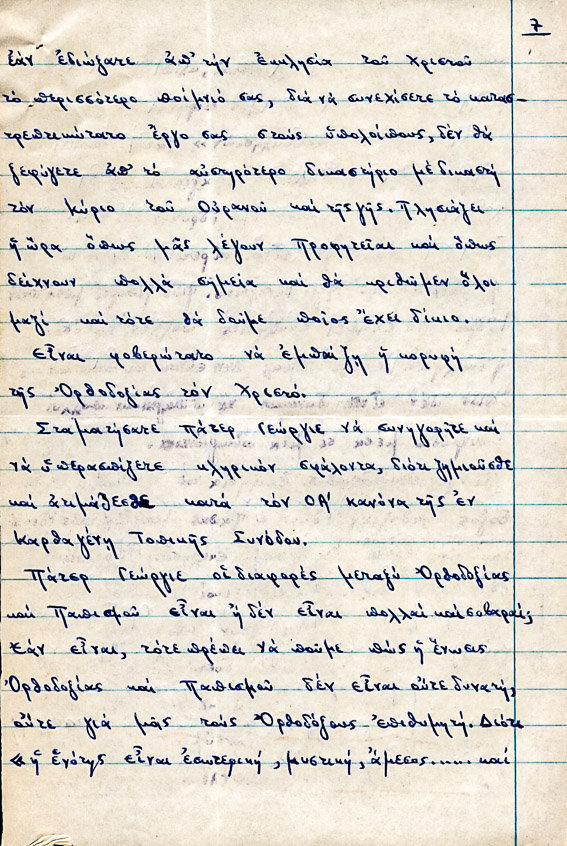 7
ἐάν ἐδιώξατε ἀπ' τήν ἐκκλησία τοῦ Χριστοῦ
τό περισσότερο ποίμνιό σας, διά νά συνεχίσετε τό κατασ-
τρεπτικώτατο ἔργο σας στούς ὑπολοίπους, δέν θά
ξεφύγετε ἀπ' τό αὐστηρότερο δικαστήριο μέ δικαστή
τόν κύριο τοῦ Οὐρανοῦ καί τῆς γῆς. Πλησιάζει
ἡ ὥρα ὅπως μᾶς λέγουν προφητεῖαι καί ὅπως
δείχνουν πολλά σημεῖα καί θά κριθῶμεν ὅλοι
μαζί καί τότε θά δοῦμε ποῖος ἔχει δίκιο.
Εἶναι φοβερώτατο νά ἐμπαίζῃ ἡ κορυφή
τῆς Ὀρθοδοξίας τόν Χριστό.
Σταματήσατε πάτερ Γεώργιε νά συνηγορῆτε καί
νά ὑπερασπίζετε κληρικόν σφάλοντα, διότι ζημιοῦσθε
καί ἀτιμάζεσθε κατά τόν ΟΑ' κανόνα τῆς ἐν
Καρθαγένῃ Τοπικῆς Συνόδου.
Πάτερ Γεώργιε οἱ διαφορές μεταξύ Ὀρθοδοξίας
καί Παπισμοῦ εἶναι ἤ δέν εἶναι πολλαί καί σοβαραί;
Ἐάν εἶναι, τότε πρέπει νά ποῦμε πώς ἡ ἕνωσις
Ὀρθοδοξίας καί Παπισμοῦ δέν εἶναι οὔτε δυνατή,
οὔτε γιά μᾶς τούς Ὀρθοδόξους ἐπιθυμητή. Διότι
«ἡ ἑνότης εἶναι ἐσωτερική, μυστική, ἄμεσος..... καί